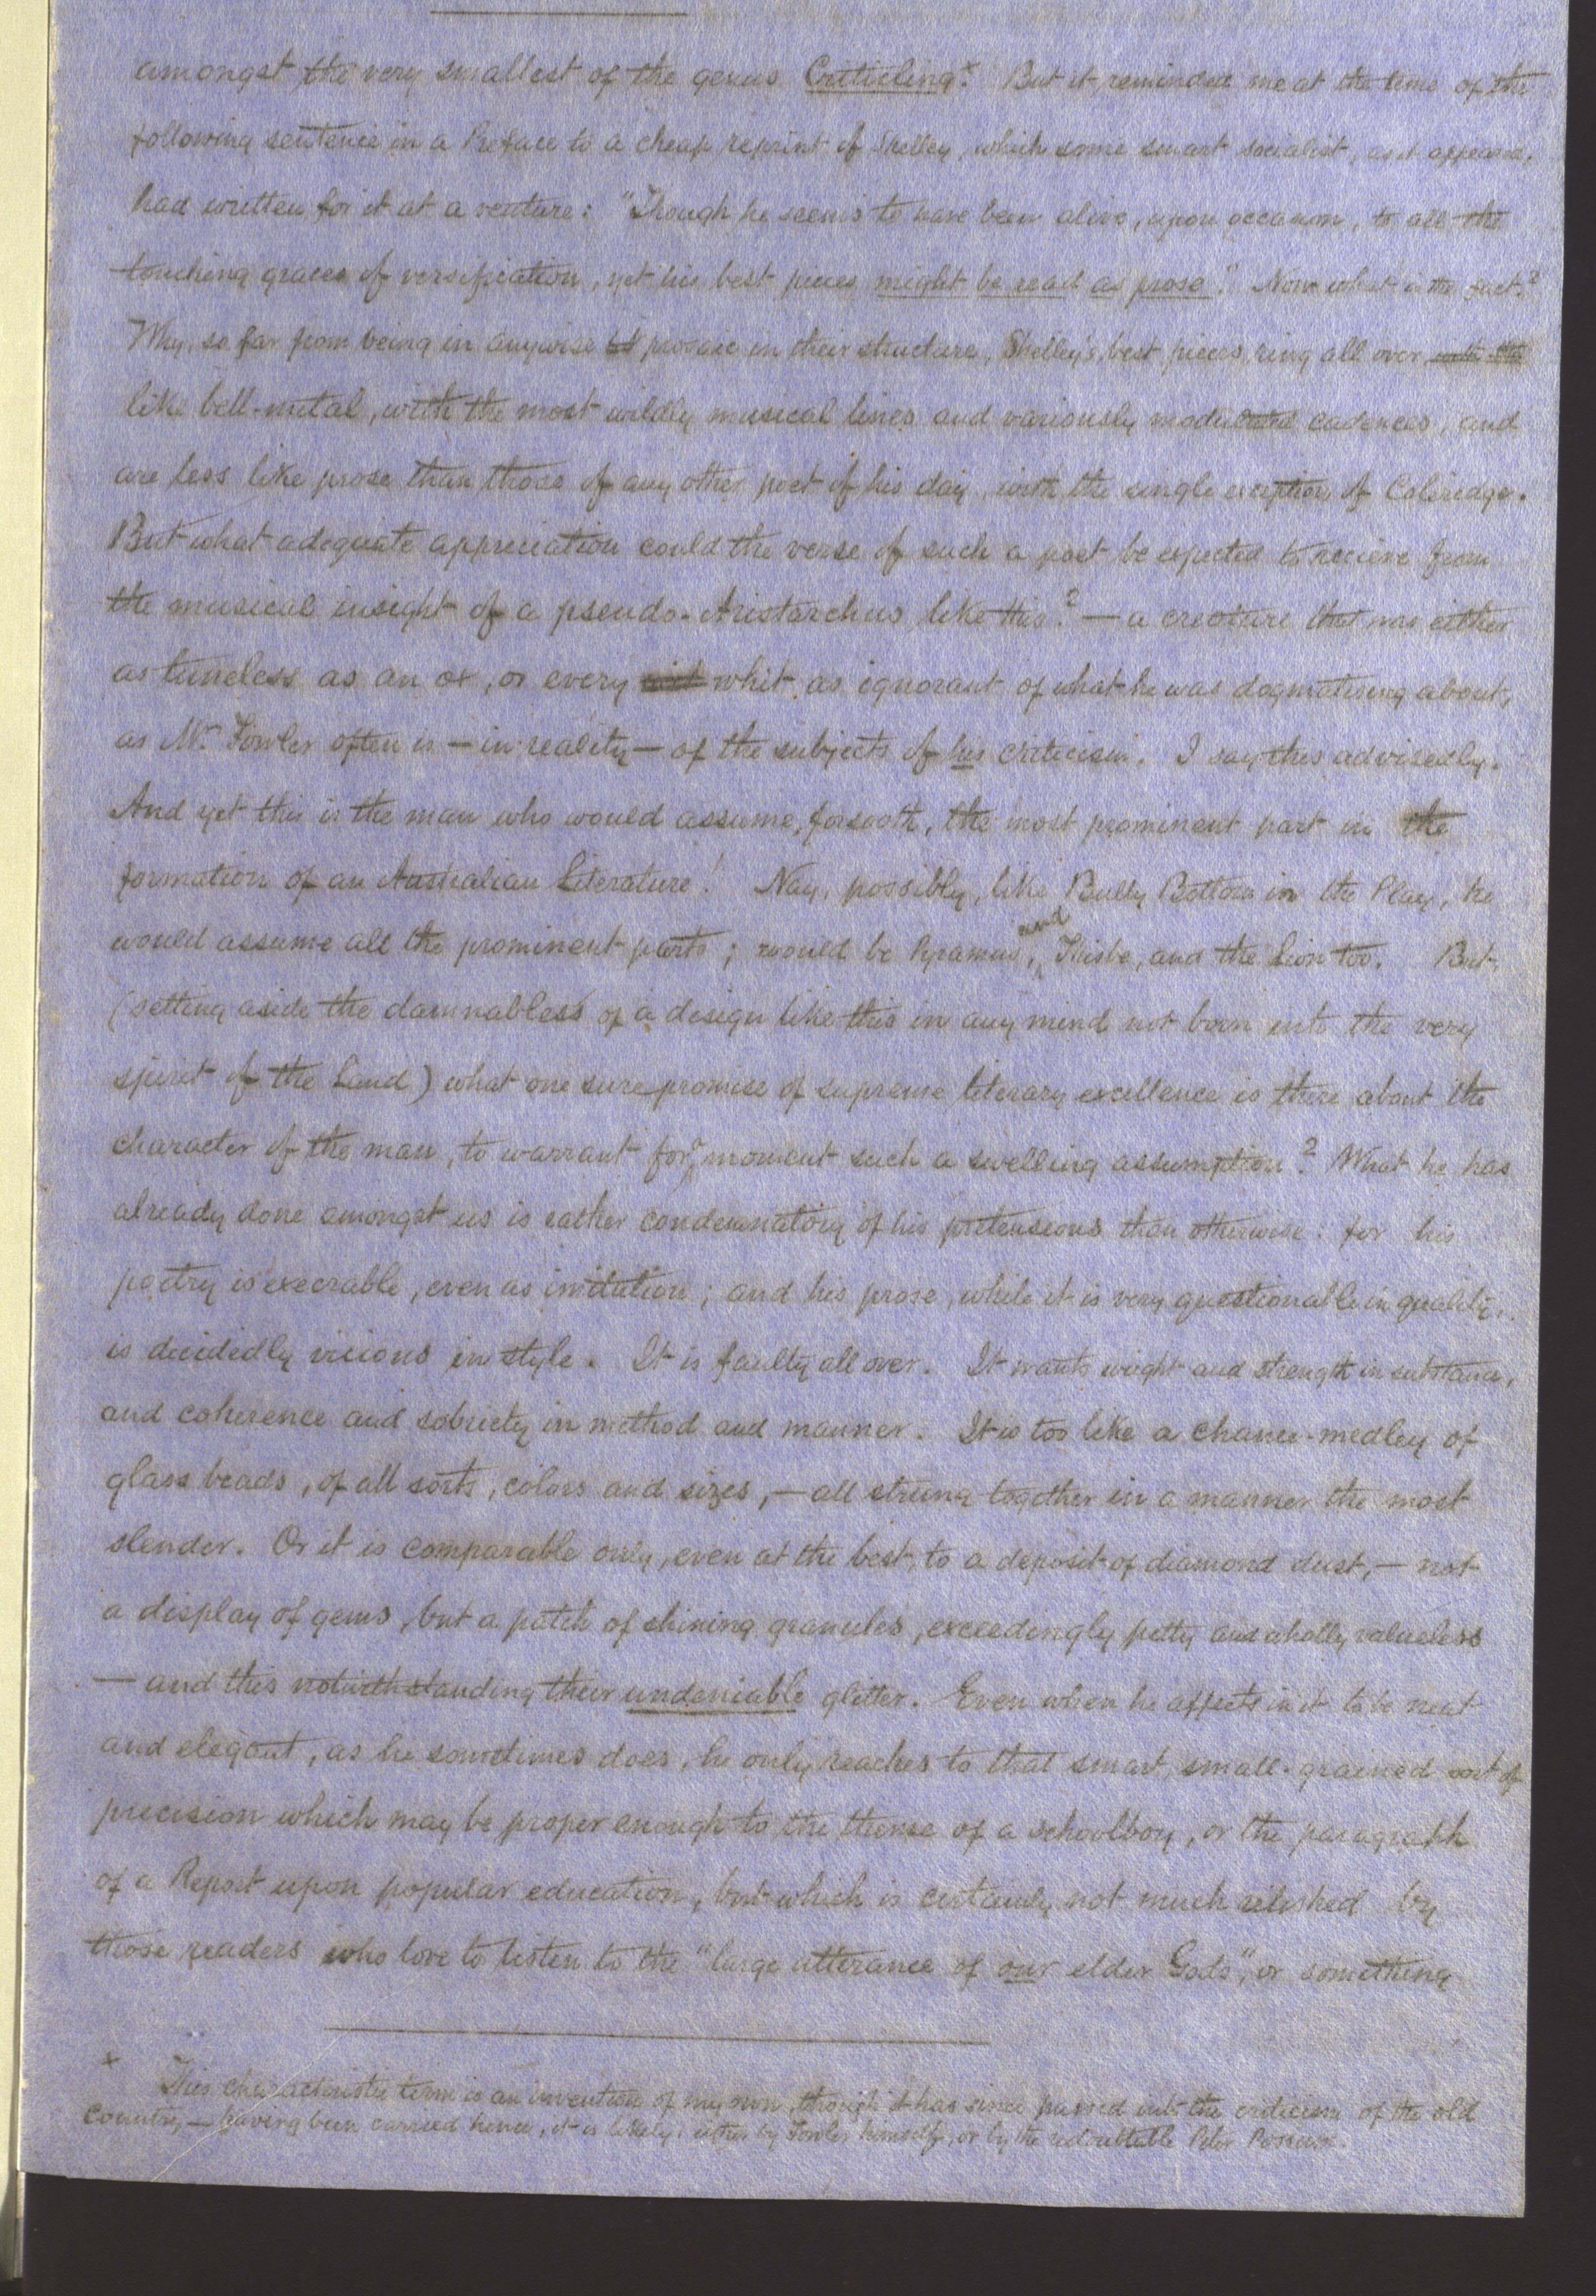 amongst the very smallest of the genus Criticling.x But it reminded me at the time of the
following sentence in a Preface to a cheap reprint of Shelley, which some smart socialist, as it appeared,
had written for it at a venture: "Though he seems to have been alive, upon occasion, to all the
touching graces of versification, yet his best pieces might be read as prose." Now what is the fact?
Why, so far from being in anywise prosaic in their structure, Shelley's best pieces, ring all over
like bell-metal, with the most wildly musical lines and variously modulated cadences, and
are less like prose than those of any other poet of his day, with the single exception of Coleridge.
But what adequate appreciation could the verse of such a poet be expected to recieve from
the musical insight of a pseudo-Aristarchus like this? — a creature that was either
as tuneless as an ox, or every whit as ignorant of what he was dogmatising about,
as Mr. Fowler often is — in reality — of the subjects of his criticism. I say this advisedly.
And yet this is the man who would assume, forsooth, the most prominent part in the
formation of an Australian Literature! Nay, possibly, like Bully Bottom in the Play, he
would assume all the prominent parts; would be Pyramus, and Thisbe, and the Lion too. But,
(setting aside the damnabless of a design like this in any mind not born into the very
spirit of the Land) what one sure promise of supreme literary excellence is there about the
character of the man, to warrant for a moment such a swelling assumption? What he has
already done amongst us is rather condemnatory of his pretensions than otherwise: for his
poetry is execrable, even as imitation; and his prose, while it is very questionable in quality,
is decidedly vicious in style. It is faulty all over. It wants weight and strength in substance,
and coherence and sobriety in method and manner. It is too like a chance-medley of
glass beads, of all sorts, colors and sizes, — all strung together in a manner the most
slender. Or it is comparable only, even at the best, to a deposit of diamond dust, — not
a display of gems, but a patch of shining granules, exceedingly petty and wholly valueless
— and this notwithstanding their undeniable glitter. Even when he affects in it to be neat
and elegant, as he sometimes does, he only reaches to that smart, small-grained sort of
precision which may be proper enough to the theme of a schoolboy, or the paragraph
of a Report upon popular education, but which is certainly not much relished by
those readers who love to listen to the "large utterance of our elder Gods", or something
x This characteristic term is an invention of my own, though it has since passed into the criticism of the old
Country, — having been carried hence, it is likely, either by Fowler himself, or by the redoubtable Peter Possum.